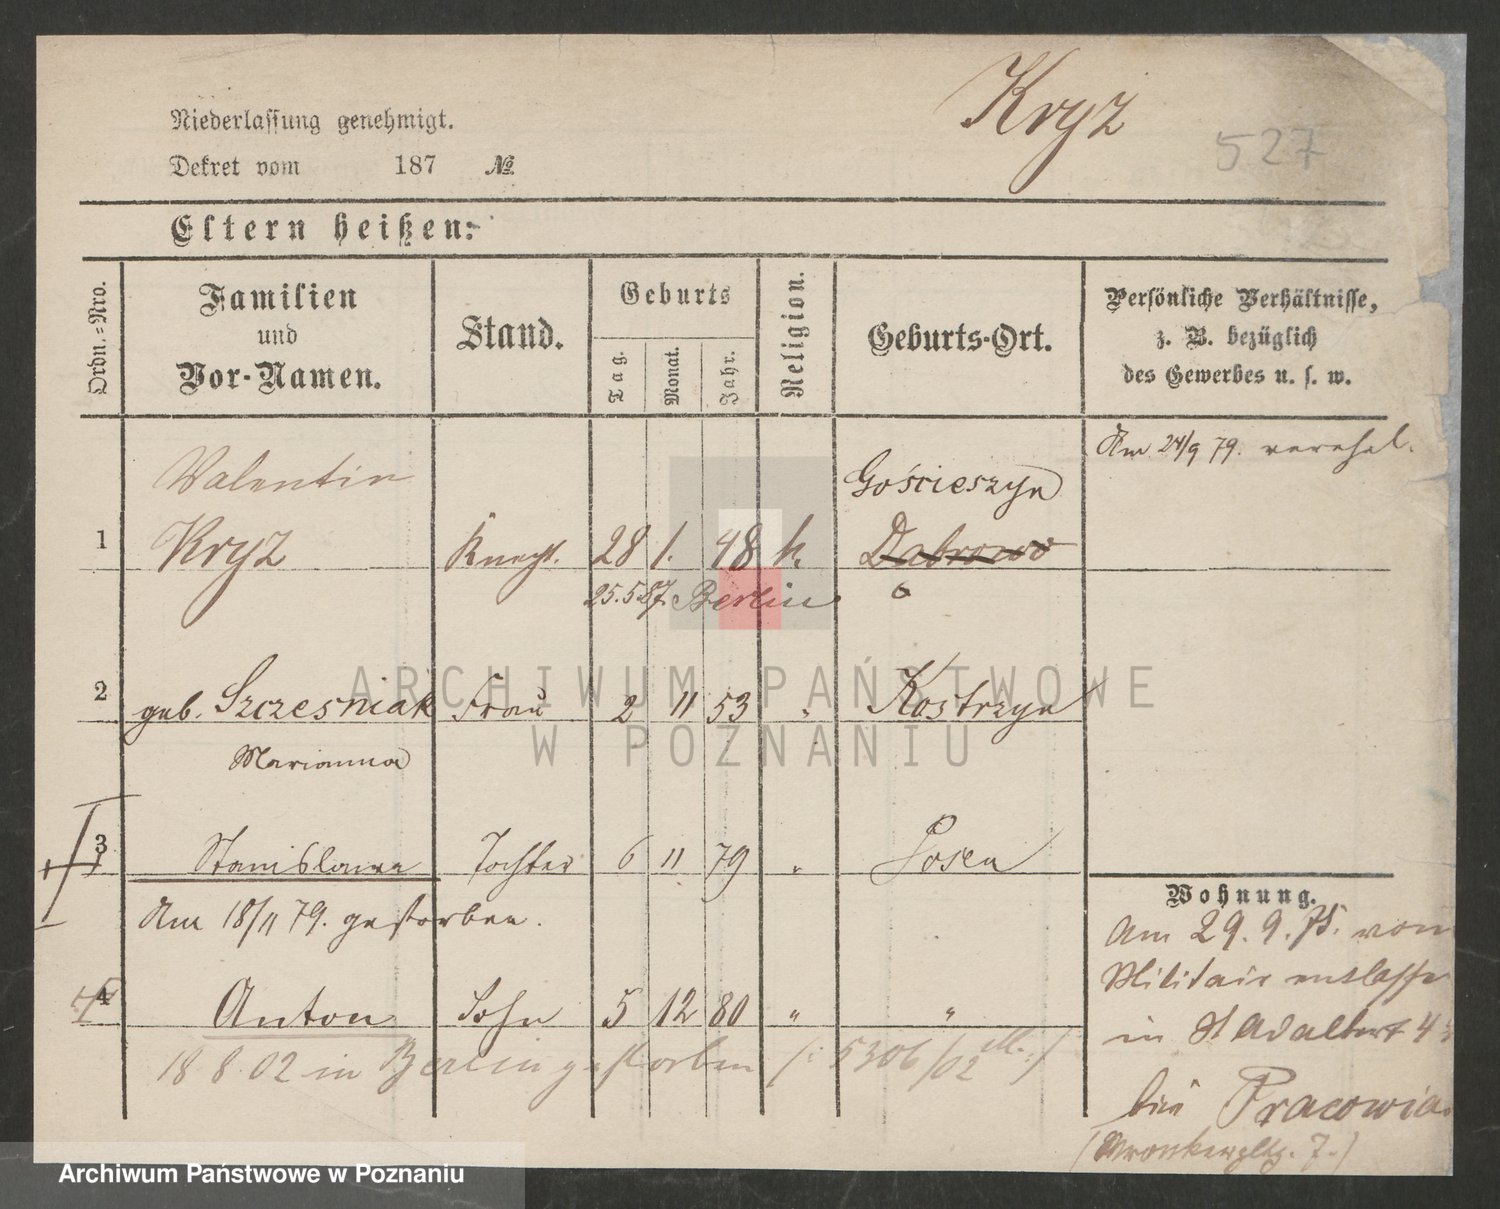 Kryz
Niederlassung genehmigt.
527
Dekret vom 187 №
Eltern heißen:
Ordn.=Nro.
Familien
und
Vor-Namen.
Stand.
Geburts
Tag.
Monat.
Jahr.
Religion.
Geburts-Ort.
Persönliche Verhältnisse,
z. B. bezüglich
des Gewerbes u. s. w.
Am 24/9 79. verehel.
Valentin Gościeszyn
1 Kryz Knecht. 28 1. 48 k. Dabrowo
25.5.87. Berlin
2 geb. Szczesniak Frau 2 11 53 " Kostrzyn
Marianna
3 Stanislawa Tochter 6 11 79 " Posen
Am 18/11 79. gestorben.
4 Anton Sohn 5 12 80 " "
18 8. 02 in Berlin gestorben /: 5306/02 :/
Wohnung.
Am 29. 9. 75. vom
Militair entlasse
in St Adalbert 4
bei Pracowia
ARCHIWUM PAŃSTWOWE
W POZNANIU
Archiwum Państwowe w Poznaniu